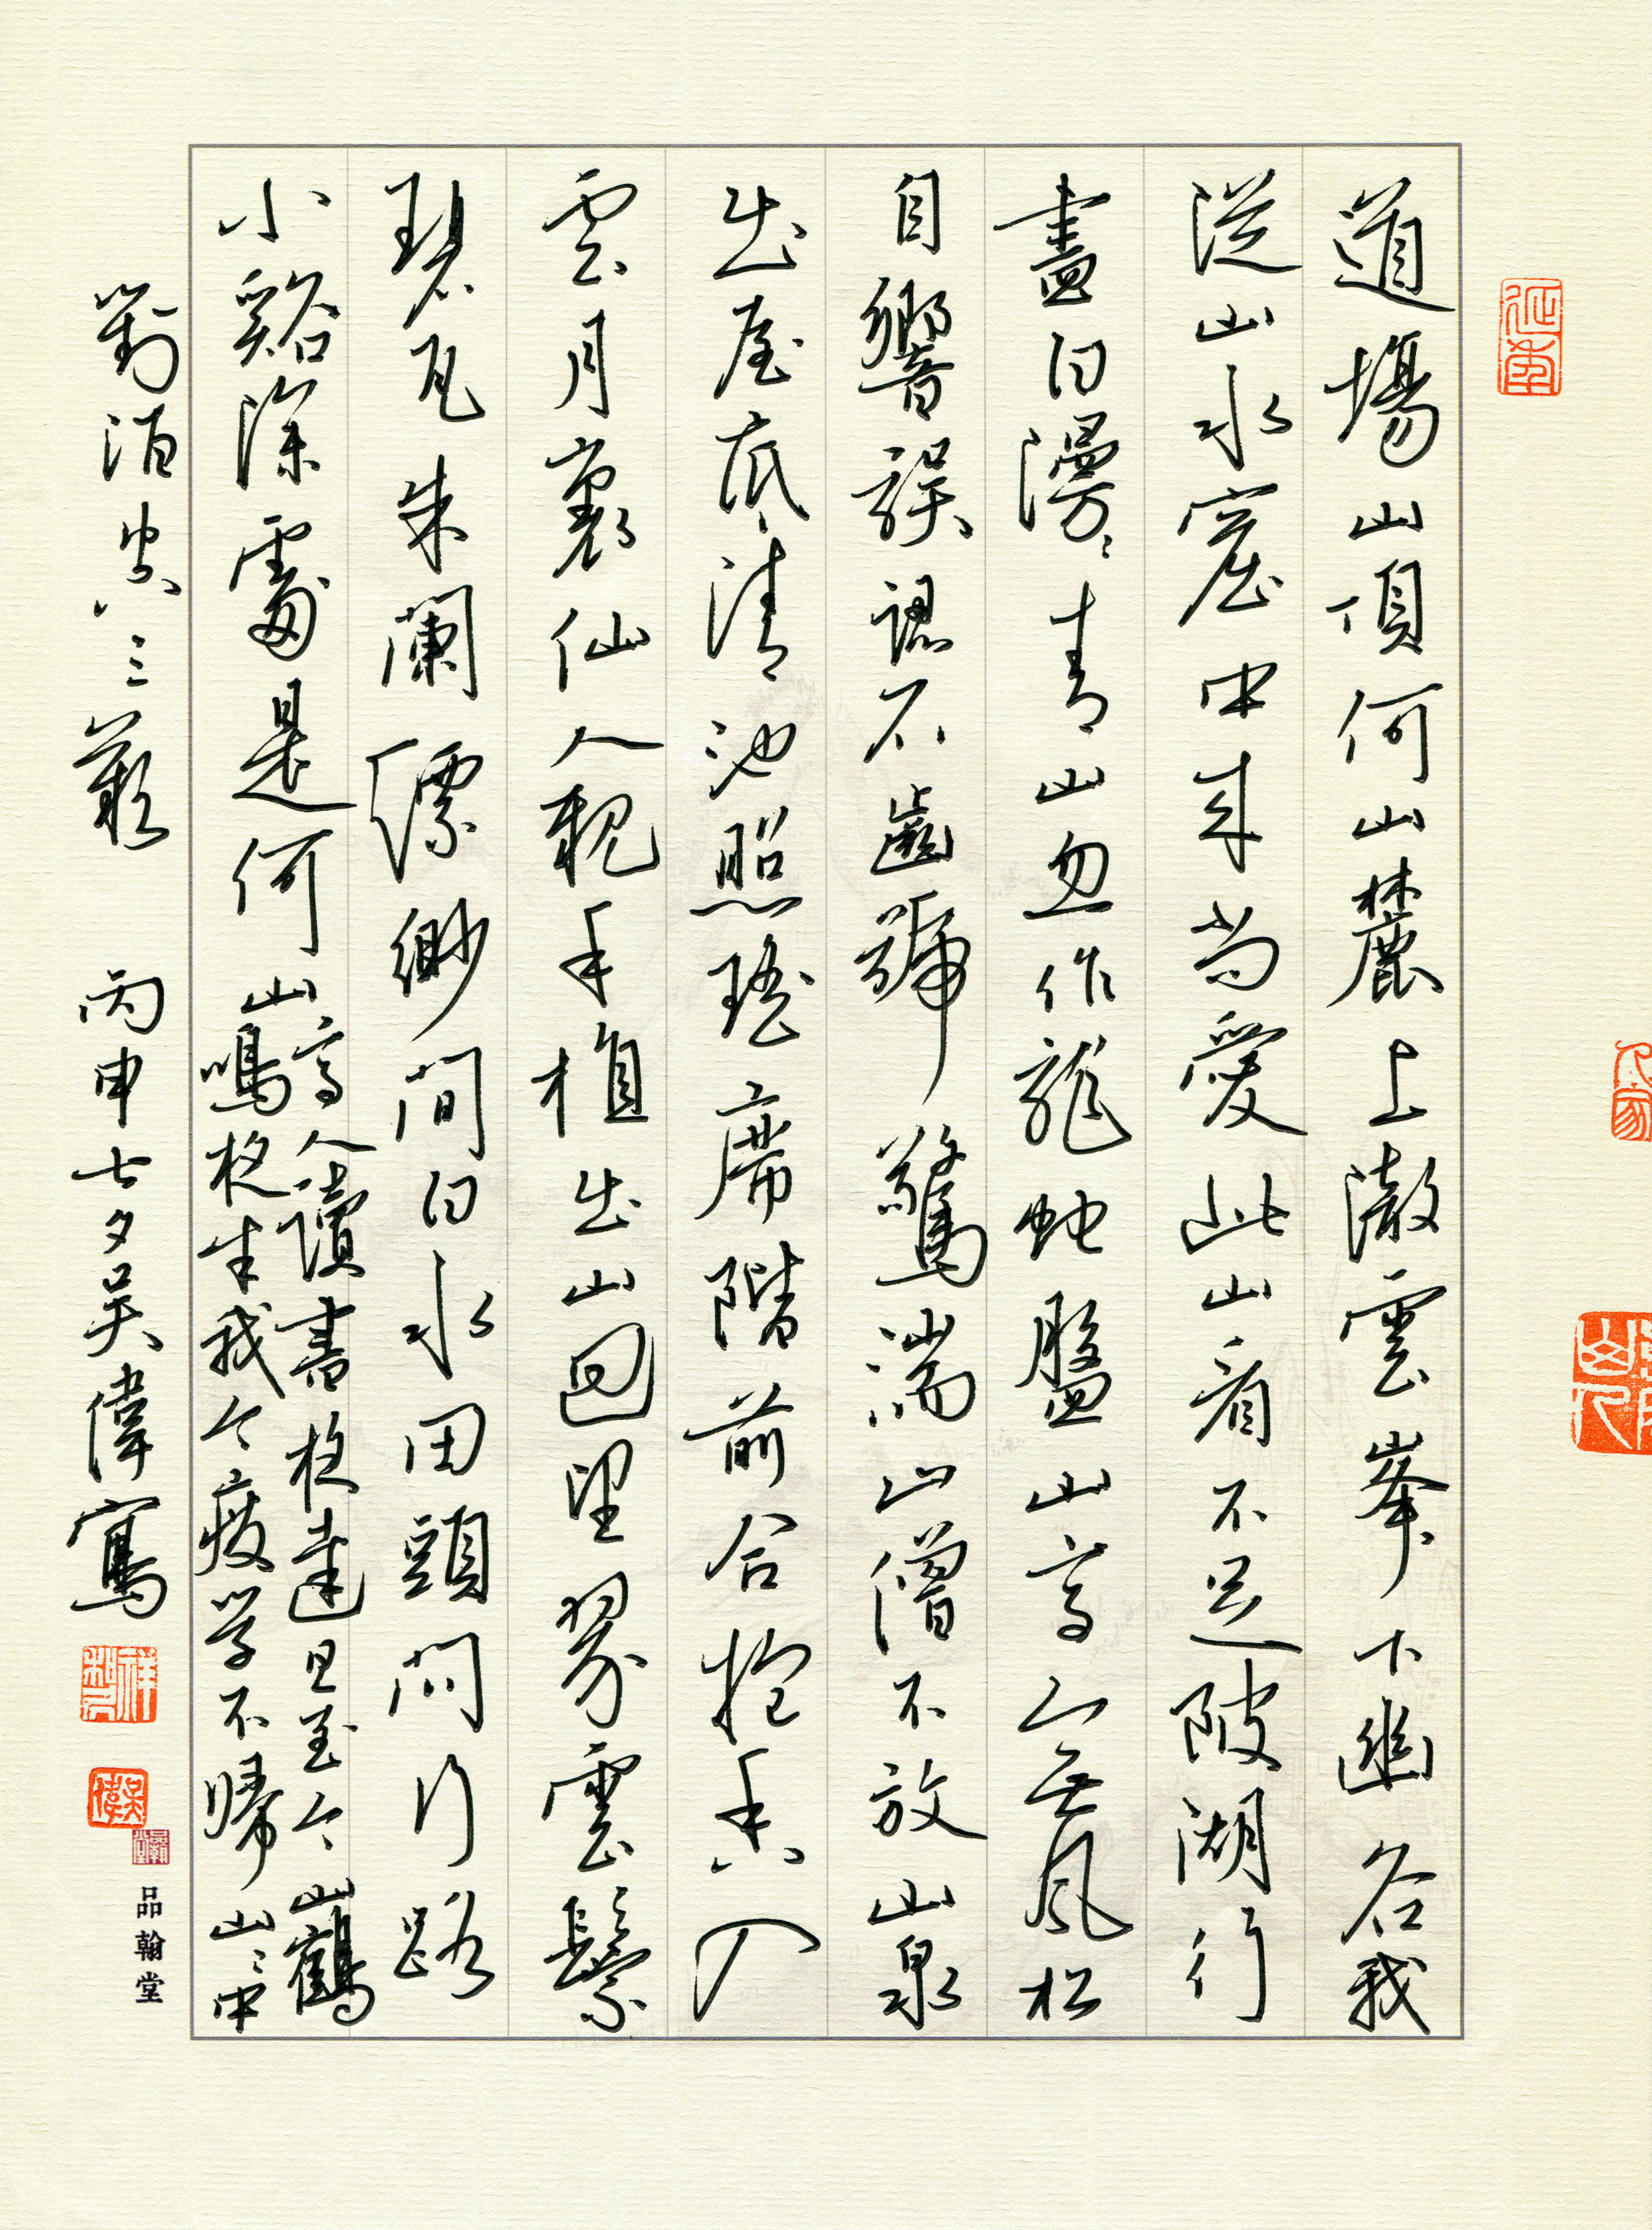 道場山頂何山麓上澈雲峯下幽谷我
從山水窟中來尚愛此山看不足陂湖行
盡白漫〻青山忽作龍蛇盤山高山无風松
自響誤認石齒號驚湍山僧不放山泉
出屋底清池照瑤席階前合抱香入
雲月裏仙人親手植出山回望翠雲鬟
碧瓦朱闌縹緲間白水田頭問行路
小谿深處是何山高人讀書夜達旦至今山鶴
鳴夜半我今廢學不歸山〻中
對酒空三歎 丙申七夕吳偉寫
吳偉
品翰堂